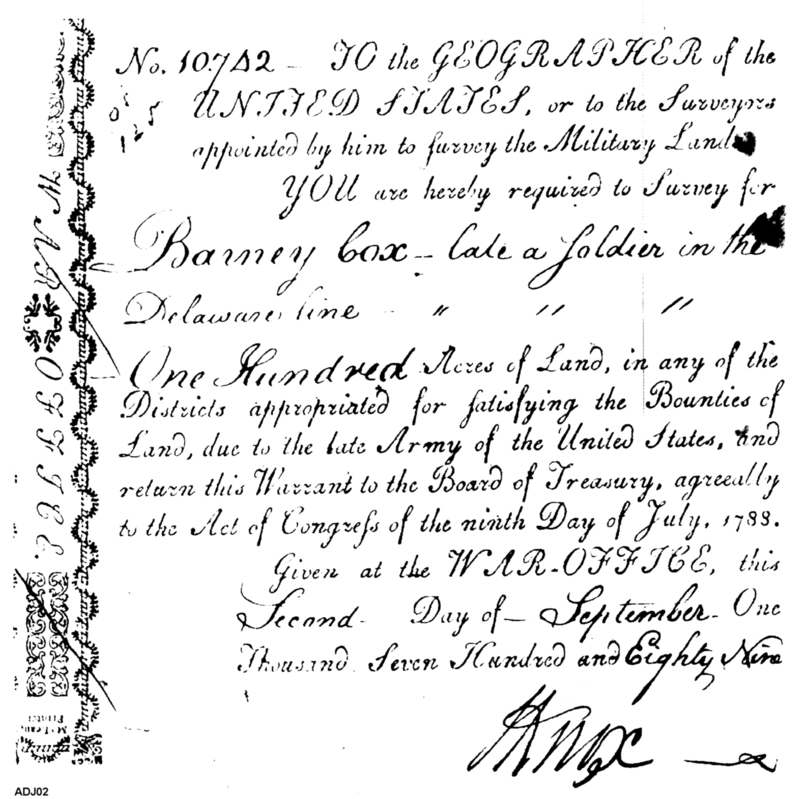 No. 10.742 - TO the GEOGRAPHER of the
UNITED STATES, or to the Surveyors
appointed by him to survey the Military Lands
YOU are hereby required to Survey for
Barney Cox - late a soldier in the
Delaware line " " "
One Hundred Acres of Land, in any of the
Districts appropriated for satisfying the Bounties of
Land, due to the late Army of the United States, and
return this Warrant to the Board of Treasury, agreeally
to the Act of Congress of the ninth Day of July, 1788.
Given at the WAR-OFFICE, this
Second - Day of - September - One
Thousand Seven Hundred and Eighty Nine
HKnox
WAR OFFICE.
ADJ02